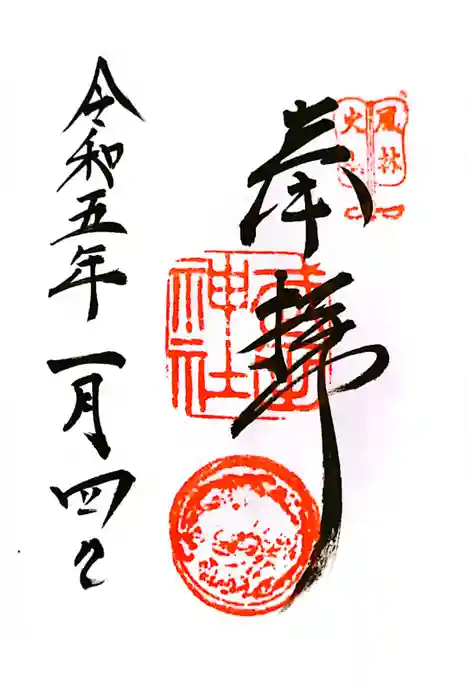 風林
火
奉拝
神社
令和五年一月四日